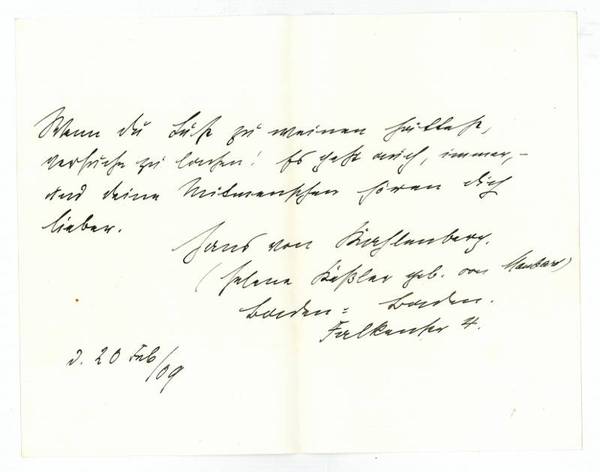 Wenn du Lust zu weinen hättest,
versuche zu lachen! Es geht auch, immer,–
und deine Mitmenschen hören dich
lieber.
Hans von Kahlenberg.
(Helene Keßler geb. von Monbart)
Baden-Baden.
Falkenstr 4.
d. 20 Feb/09